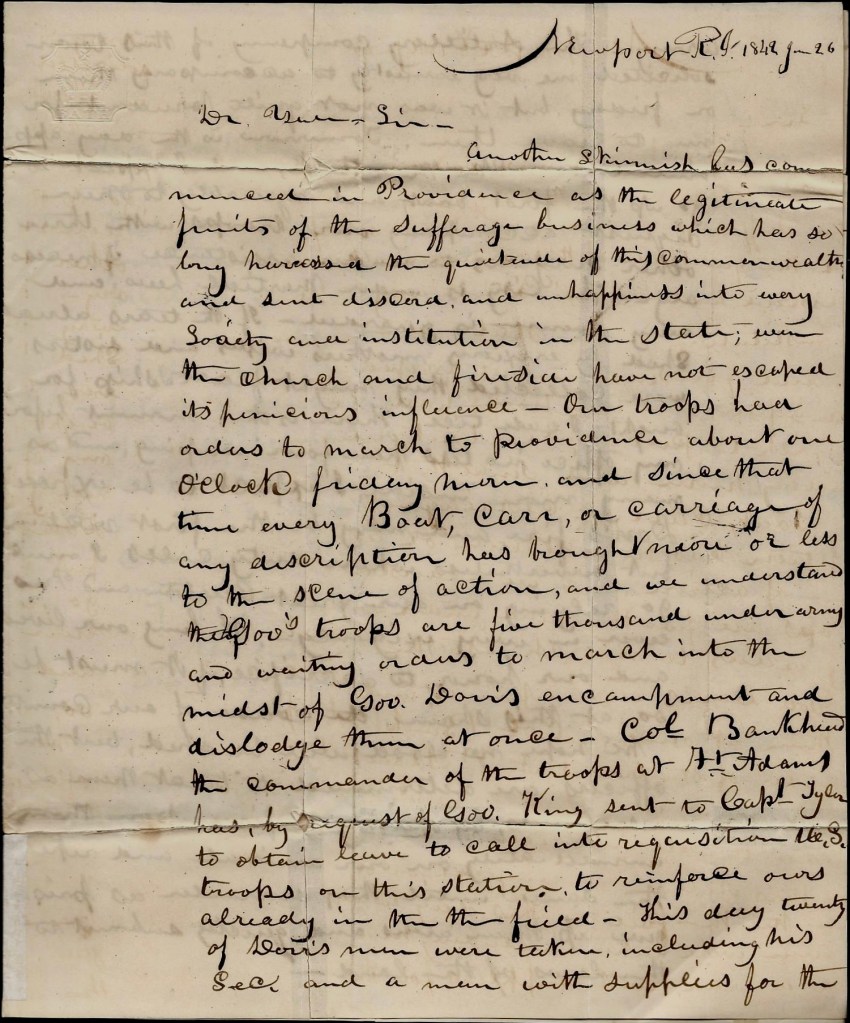 Newport R.I. 1842 Jun 26
Dr. Sir -
Another Skirmish has com-
menced in Providence as the legitimate
fruits of the Sufferage business which has so
long harassed the quietude of this commonwealth
and sent discord, and unhappiness into every
Society and institution in the state; even
the church and fireside have not escaped
its penicious influence - Our troops had
orders to march to Providence about one
O'clock friday morn. and since that
time every Boat, Carr, or carriage of
any discription has brought more or less
to the scene of action, and we understand
the Gov's troops are five thousand under army
and waiting orders to march into the
midst of Gov. Dorrs encampment and
dislodge them at once - Col. Bankhead
the commander of the troops at Ft. Adams
has, by request of Gov. King sent to Capt. Tyler
to obtain leave to call into requisition the U.S.
troops on this station, to reinforce ours
already in the the field - This day twenty
of Dorrs men were taken, including his
Sec. and a man with supplies for the